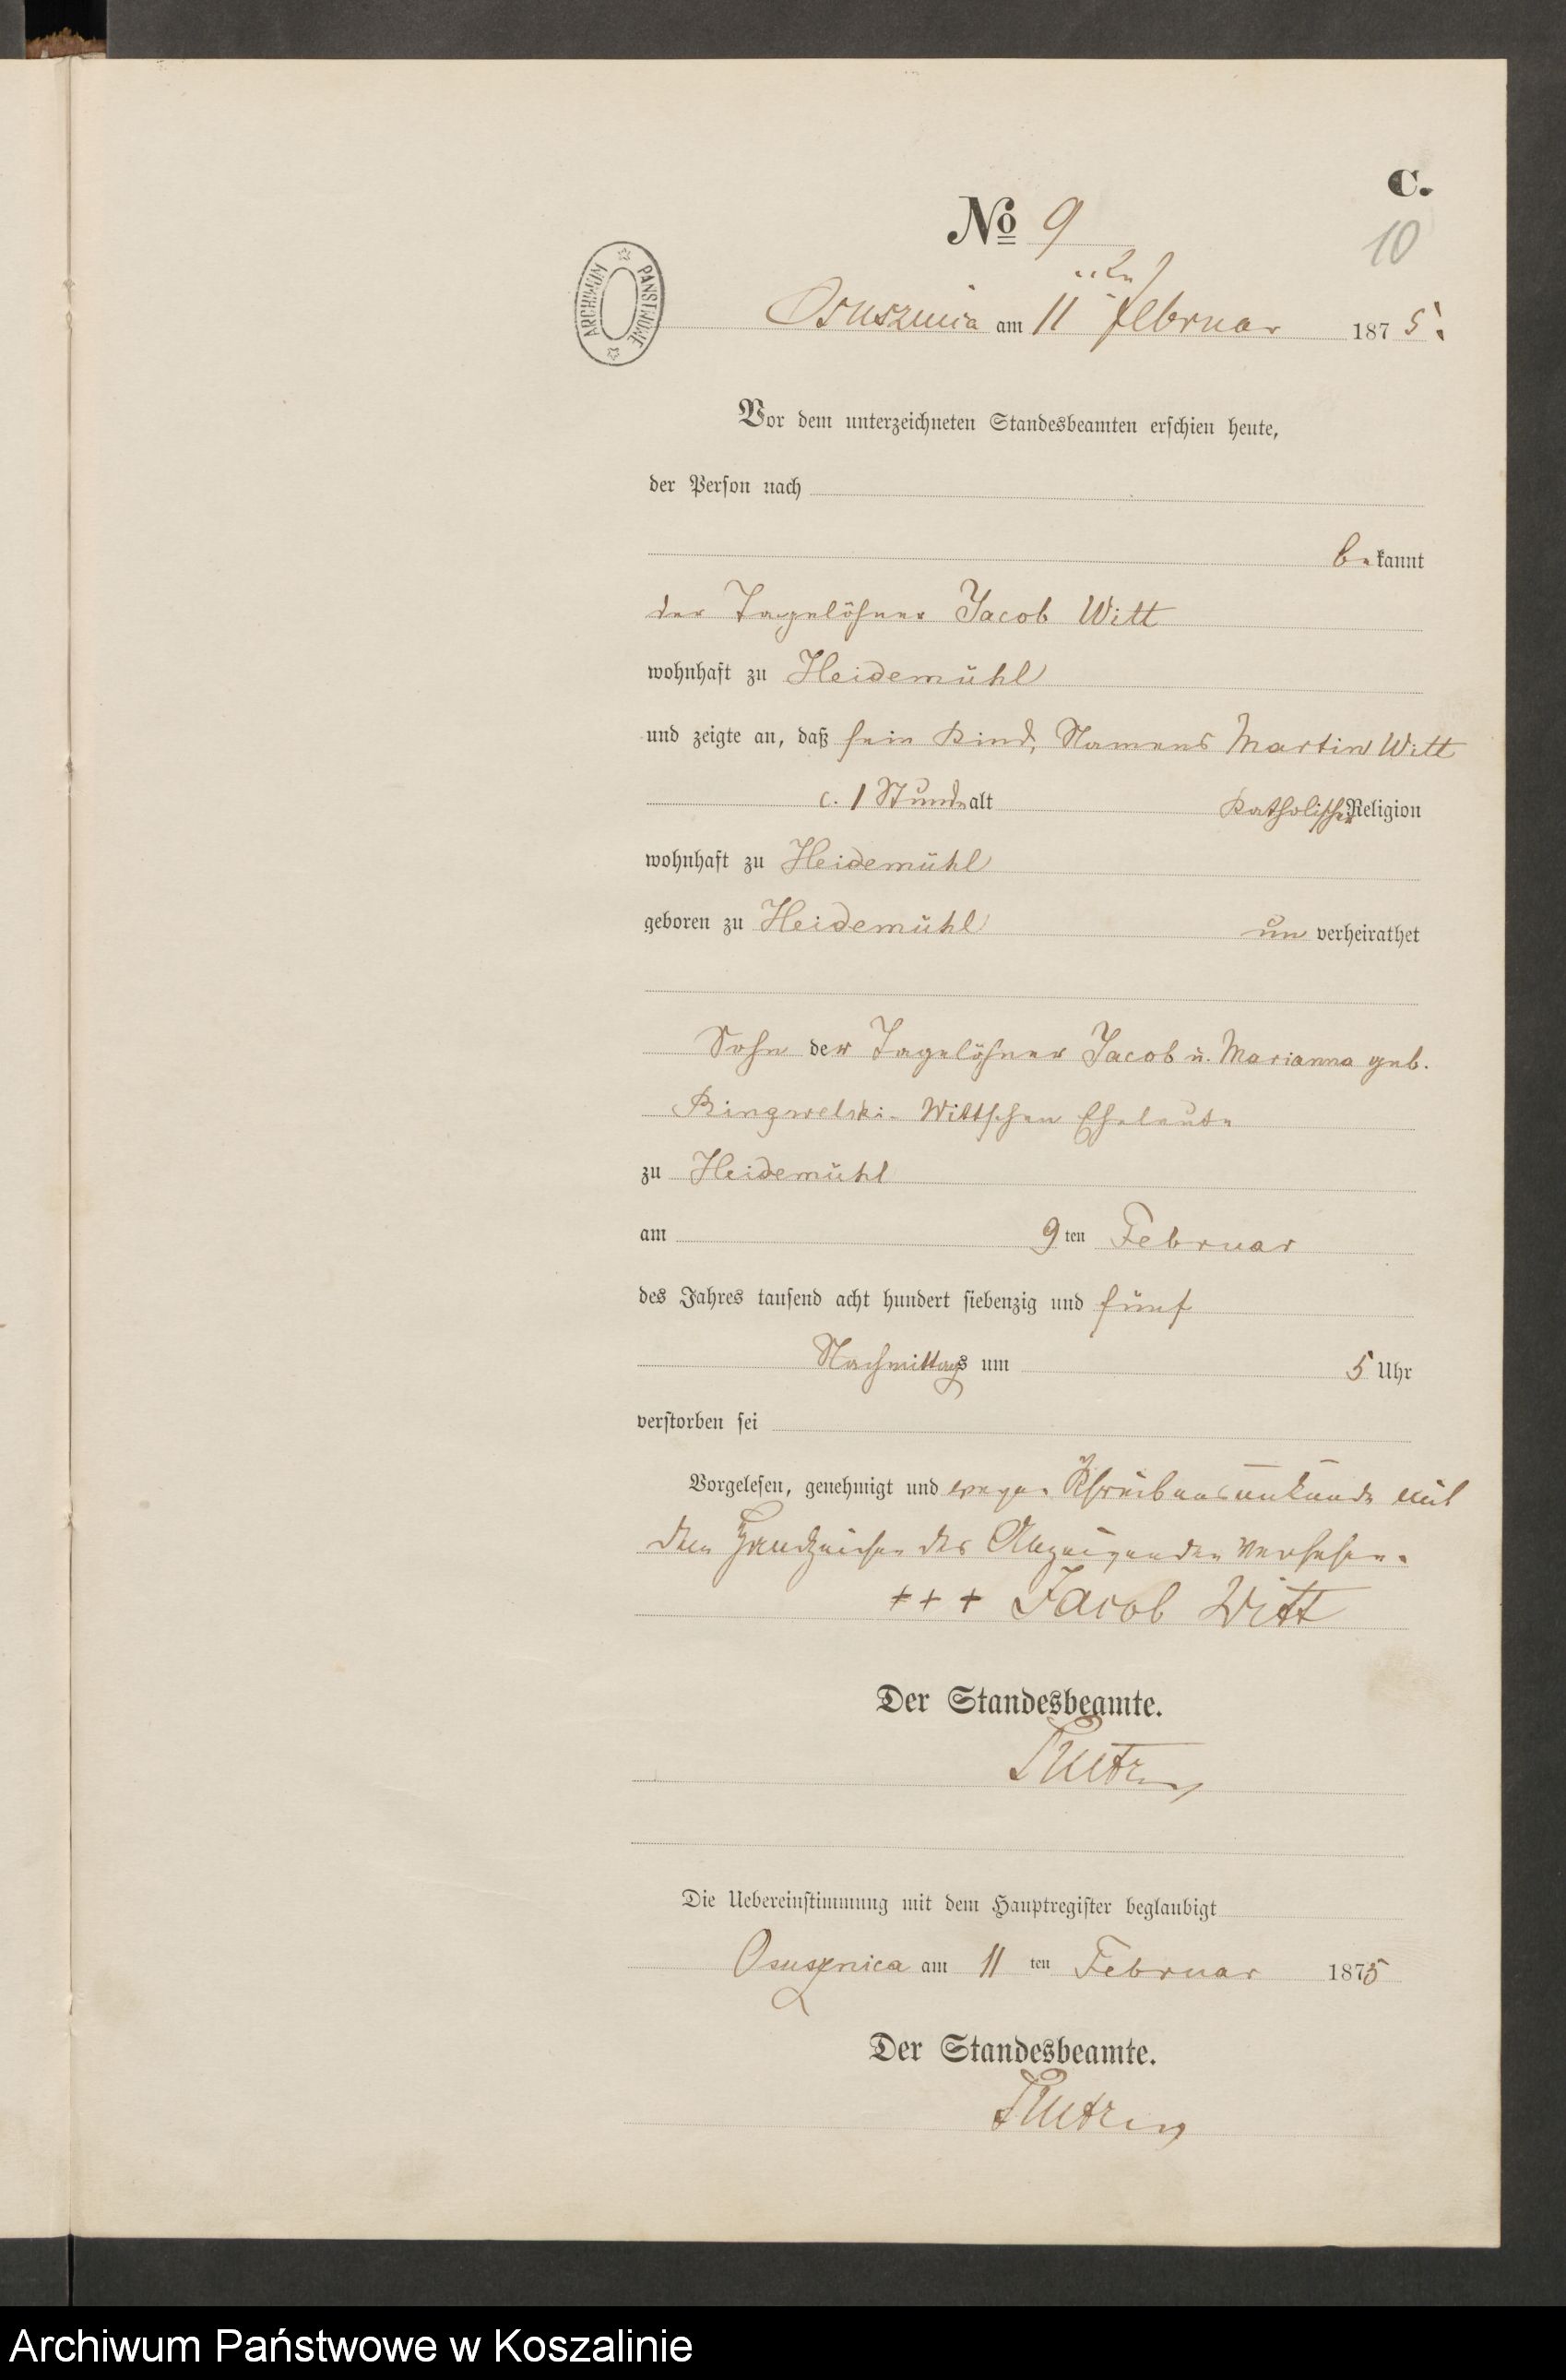 C.
No 9
10
ARCHIWUM PAŃSTWOWE
Osusznica am 11ten Februar 1875.
Vor dem unterzeichneten Standesbeamten erschien heute,
der Person nach
bekannt
der Tagelöhner Jacob Witt
wohnhaft zu Heidemühl
und zeigte an, daß sein Kind, Namens Martin Witt
c. 1 Stunde alt Katholischer Religion
wohnhaft zu Heidemühl
geboren zu Heidemühl un verheirathet
Sohn der Tagelöhner Jacob u. Marianna geb.
Ringwelski- Wittschen Eheleute
zu Heidemühl
am 9ten Februar
des Jahres tausend acht hundert siebenzig und fünf
Nachmittags um 5 Uhr
verstorben sei
Vorgelesen, genehmigt und wegen Schreibensunkunde mit
dem Handzeichen des Anzeigenden versehen.
+++ Jacob Witt
Der Standesbeamte.
Die Uebereinstimmung mit dem Hauptregister beglaubigt
Osusznica am 11ten Februar 1875
Der Standesbeamte.
Archiwum Państwowe w Koszalinie